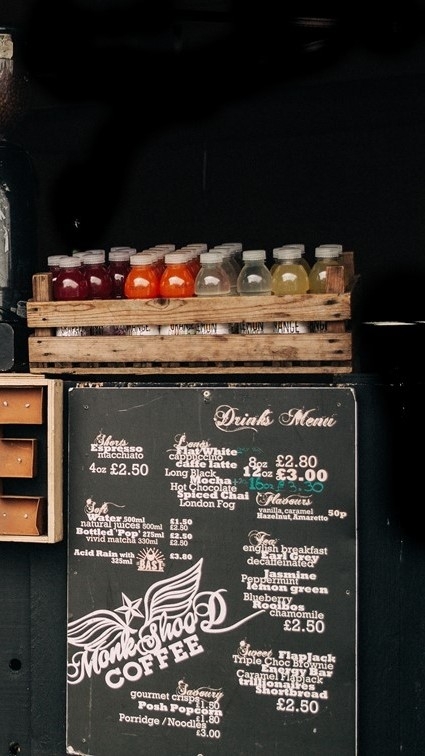 Drinks Menu
Shorts
Espresso
macchiato
4oz £2.50
Longs
Flat White
cappuccino
caffe latte
Long Black
Mocha
Hot Chocolate
Spiced Chai
London Fog
8oz £2.80
12oz £3.00
16oz £3.30
Flavours
vanilla, caramel 50p
Hazelnut, Amaretto
Soft
Water 500ml £1.50
natural juices 500ml £2.50
Bottled 'Pop' 275ml £2.50
vivid matcha 330ml £2.50
Acid Rain with £3.80
325ml
BAST
Tea
english breakfast
Earl Grey
decaffeinated
Jasmine
Peppermint
lemon green
Blueberry
Rooibos
chamomile
£2.50
MonkShooD
COFFEE
Sweet Flapjack
Triple Choc Brownie
Energy Bar
Caramel Flapjack
trillionaires
Shortbread
£2.50
Savoury
gourmet crisps £1.50
Posh Popcorn
£1.80
Porridge / Noodles
£3.00